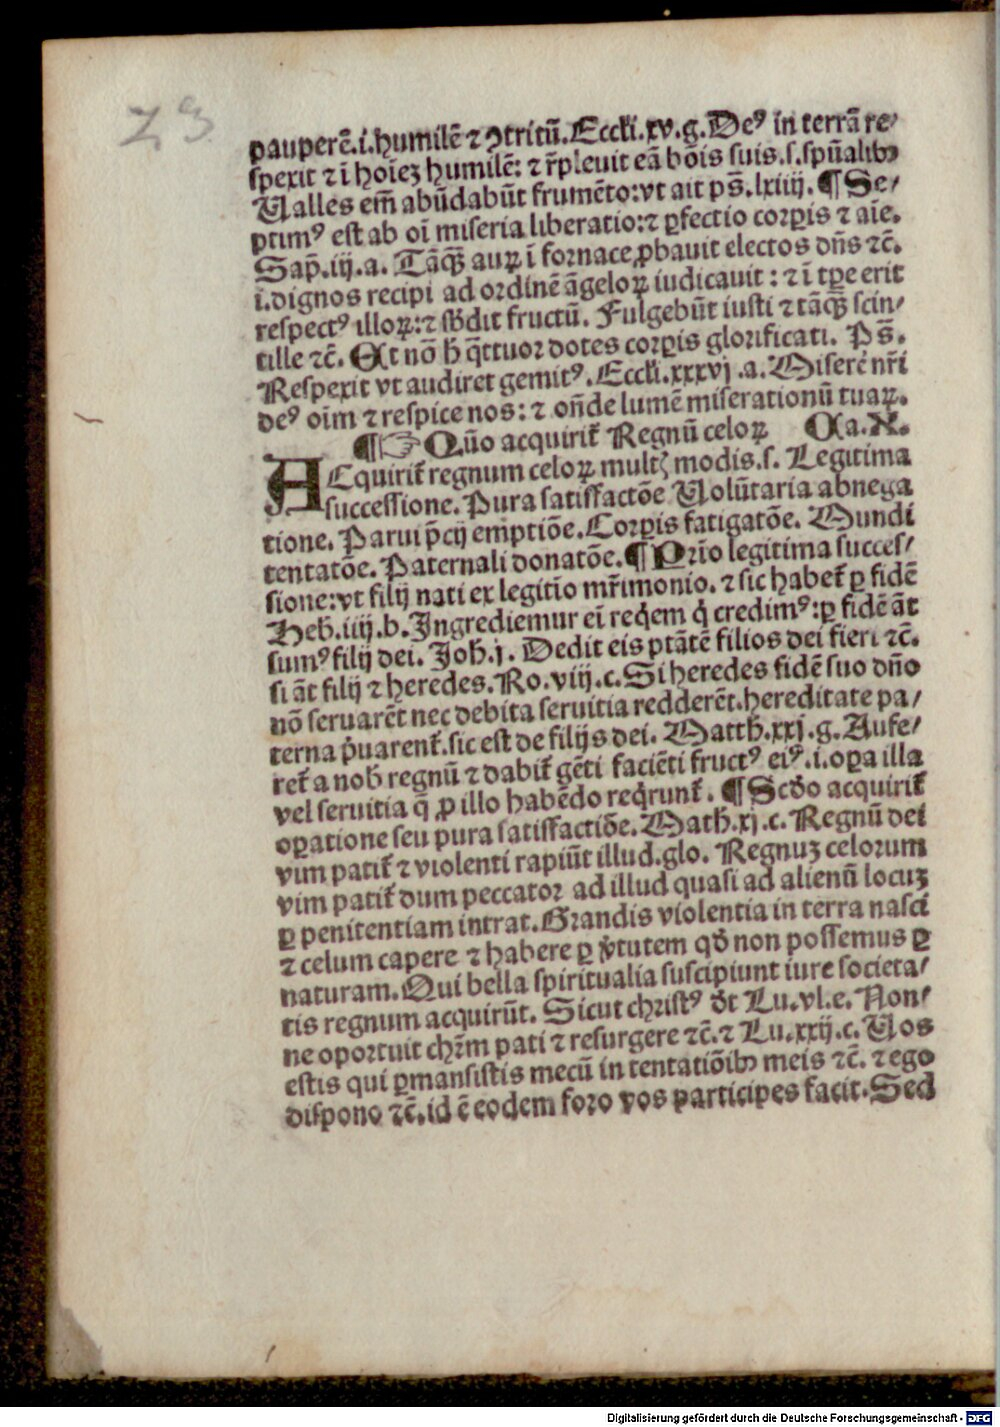 23
pauperē.i.humilē ⁊ ꝯtritū.Eccłi.xv.g.Deꝰ in terrā re⸗
spexit ⁊ ī hoīeꝫ humilē: ⁊ r̄pleuit eā bōis suis.s.spūalibꝰ
Valles em̄ abūdabūt frumēto:vt ait ps̄.lxiiij.¶Se⸗
ptimꝰ est ab oī miseria liberatio:⁊ ꝑfectio corꝑis ⁊ aīe.
Sap̄.iij.a. Tāqȝ̄ auꝝ ī fornace ꝓbauit electos dn̄s ⁊c̄.
i.dignos recipi ad ordinē āgeloꝝ iudicauit : ⁊ ī tꝑe erit
respectꝰ illoꝝ:⁊ sb̄dit fructū. Fulgebūt iusti ⁊ tāqȝ̄ scin⸗
tille ⁊c̄. Et nō h̄ q̄ttuor dotes corꝑis glorificati. Ps̄.
Respexit vt audiret gemitꝰ.Eccłi.xxxvj .a.Miserē nr̄i
deꝰ oīm ⁊ respice nos: ⁊ on̄de lumē miserationū tuaꝝ.
¶☞ Quō acquirit̄ Regnū celoꝝ Ca.X.
ACquirit̄ regnum celoꝝ multꝭ modis.s. Legitima
successione. Pura satisfactōe Volūtaria abnega
tione. Parui p̄cij emptiōe.Corꝑis fatigatōe. Mundi
tentatōe. Paternali donatōe.¶Prīo legitima succes⸗
sione:vt filij nati ex legitīo mr̄imonio. ⁊ sic habet̄ ꝑ fidē
Heb̄.iiij.b.Ingrediemur eī req̄em q̇ credimꝰ:ꝑ fidē āt
sumꝰ filij dei. Joh̄.j. Dedit eis ptātē filios dei fieri ⁊c̄.
si āt filij ⁊ heredes.Ro.viij.c.Si heredes fidē suo dn̄o
nō seruarēt nec debita seruitia redderēt.hereditate pa⸗
terna p̄uarent̄.sic est de filijs dei. Matth.xxj.g.Aufe⸗
ret̄ a nob̄ regnū ⁊ dabit̄ gēti faciēti fructꝰ eiꝰ.i.oꝑa illa
vel seruitia q̄ ꝓ illo habēdo req̇runt̄. ¶Scd̄o acquirit̄
oꝑatione seu pura satisfactiōe.Math.xj.c.Regnū dei
vim patit̄ ⁊ violenti rapiūt illud.glo. Regnuꝫ celorum
vim patit̄ dum peccator ad illud quasi ad alienū locuꝫ
ꝑ penitentiam intrat.Grandis violentia in terra nasci
⁊ celum capere ⁊ habere ꝑ v̇tutem qd̄ non possemus ꝑ
naturam.Qui bella spiritualia suscipiunt iure societa⸗
tis regnum acquirūt. Sicut christꝰ d̄t Lu.vl.e. Non⸗
ne oportuit chr̄m pati ⁊ resurgere ⁊c̄.⁊ Lu.xxij.c.Vos
estis qui ꝑmansistis mecū in tentatiōibꝰ meis ⁊c̄. ⁊ ego
dispono ⁊c̄.id ē eodem foro vos participes facit.Sed
Digitalisierung gefördert durch die Deutsche Forschungsgemeinschaft - DFG